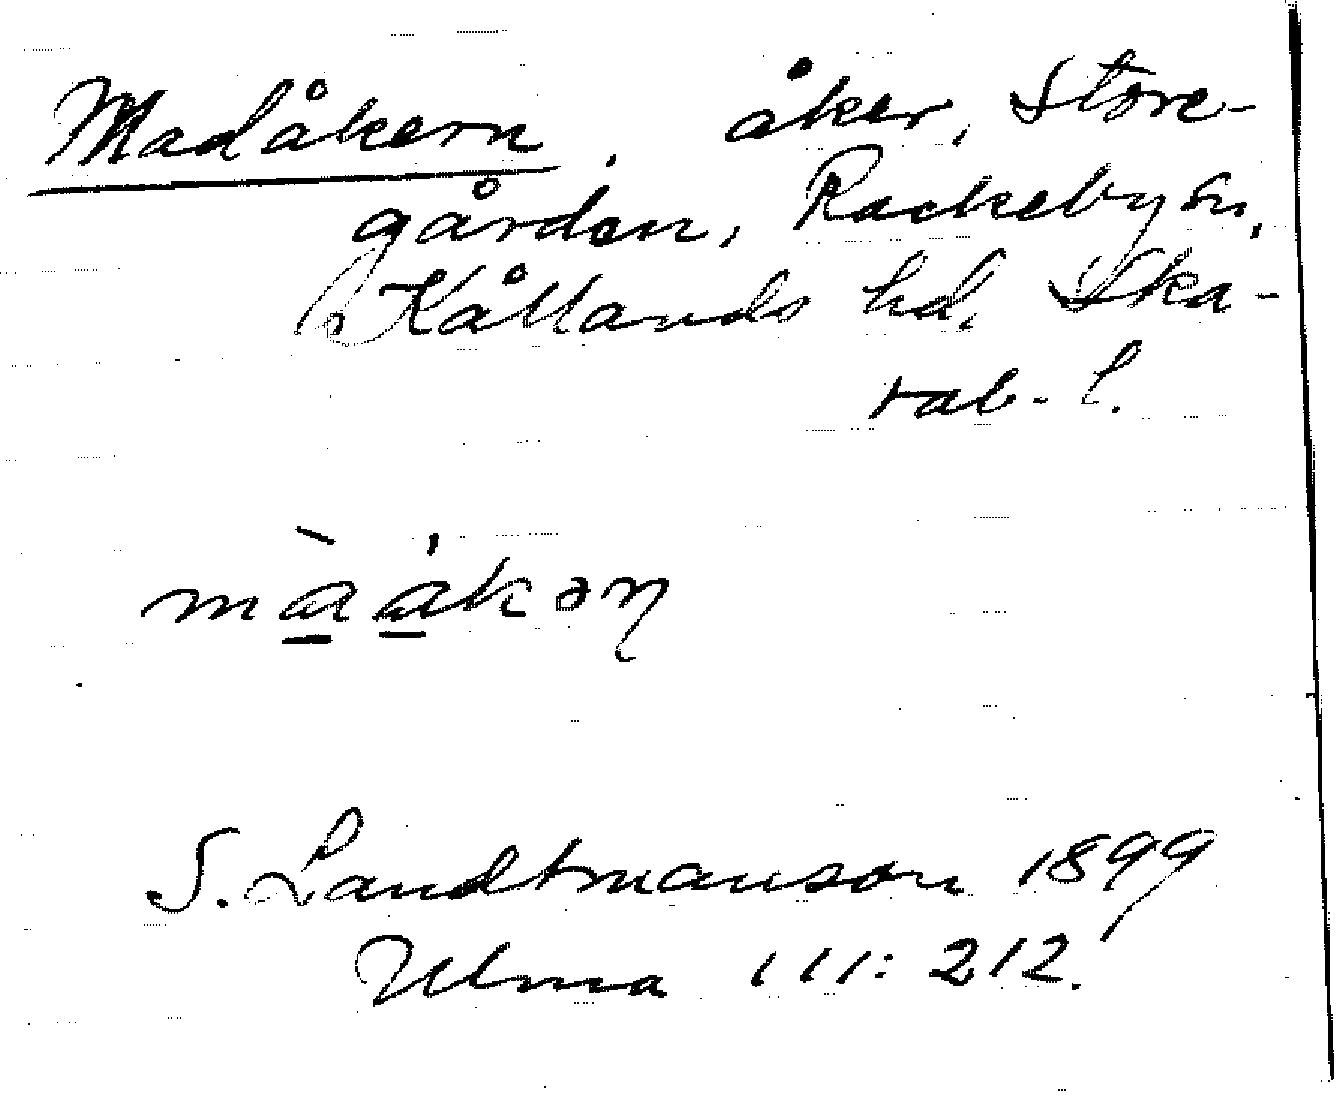 Madåkern, åker, Store-
gården, Rackeby sn,
Kållands hd, Ska-
rab. l.
mà̱á̱kəɳ
S. Landtmanson 1899
Ulma 111:212.